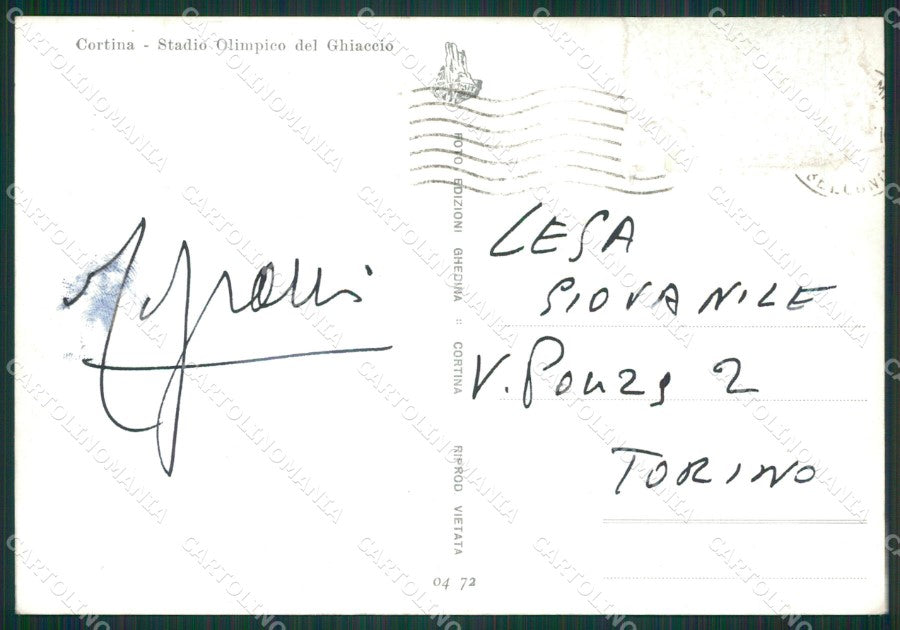 Cortina - Stadio Olimpico del Ghiaccio
FOTO EDIZIONI GHEDINA :: CORTINA RIPROD VIETATA
LESA
GIOVANILE
V. Ponza 2
TORINO
04 72
CARTOLINOMANIA